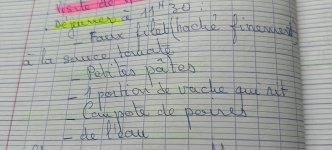 Déjeuner à 11H30 :
- Faux filet haché finement
à la sauce tomate
- Petites pâtes
- 1 portion de vache qui rit
- Compote de poires
- de l'eau